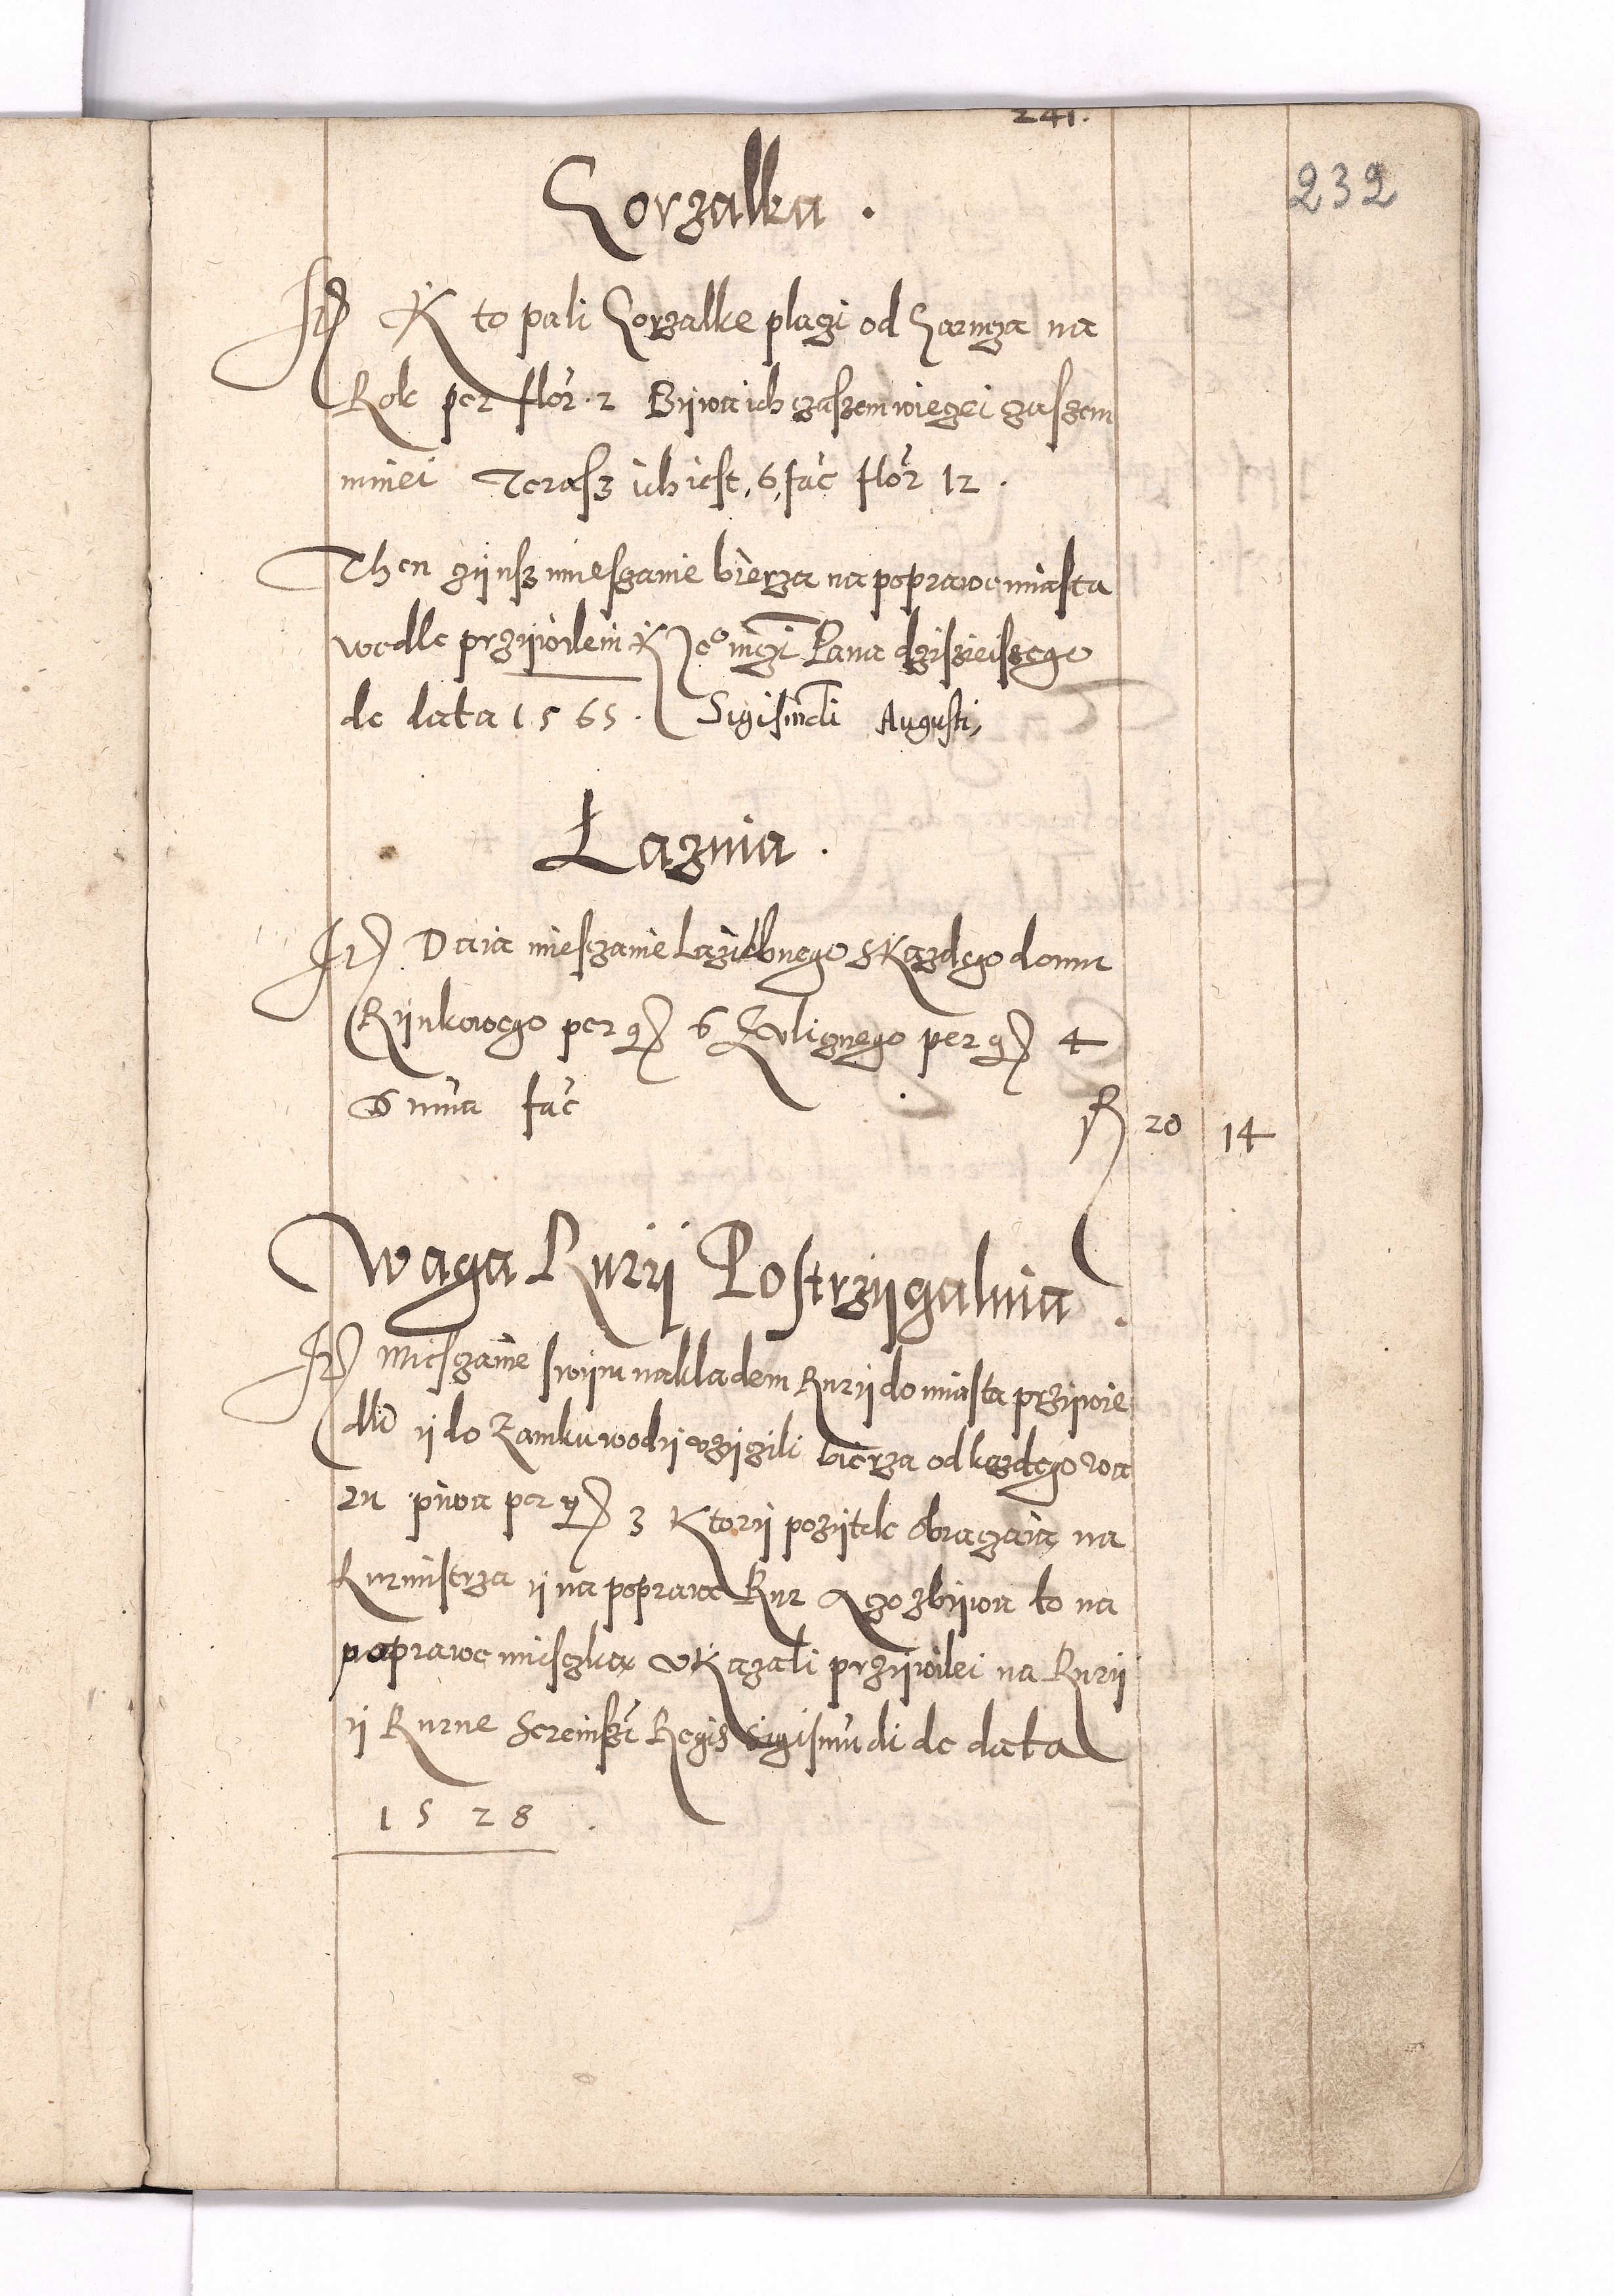 241.
232
Gorzalka .
It K to pali Gorzalke placzi od Garncza na
Rok per flor. 2 Bywa ich czaszem wieczei czaszem
mniei Terasz ich iest, 6, fac flor 12 .
Then czynsz miesczanie bierza na poprawe miasta
wedle przywilein K Jeo mczi Pana dzisieiszego
de data 1565 . Sigismdi Augusti,
Łaznia .
It Daia miesczanie Laziebnego SKazdego domu
Rynkowego per g 6 Z Vlicznego per g 4
Suma fac
fl 20 14
Waga Rury Postrzygalnia .
It Miesczanie swym nakladem Rury do miasta przywie
dli y do Zamku wody vzyczili bierza od kazdego wa
ru piwa per g 3 Ktory pozytek obraczaia na
Rurmistrza y na poprawe Rur A czo zbywa to na
poprawe miesczka VKazali przywilei na Rury
y Rurne Serenissi Regis Sigismudi de data
1528 .